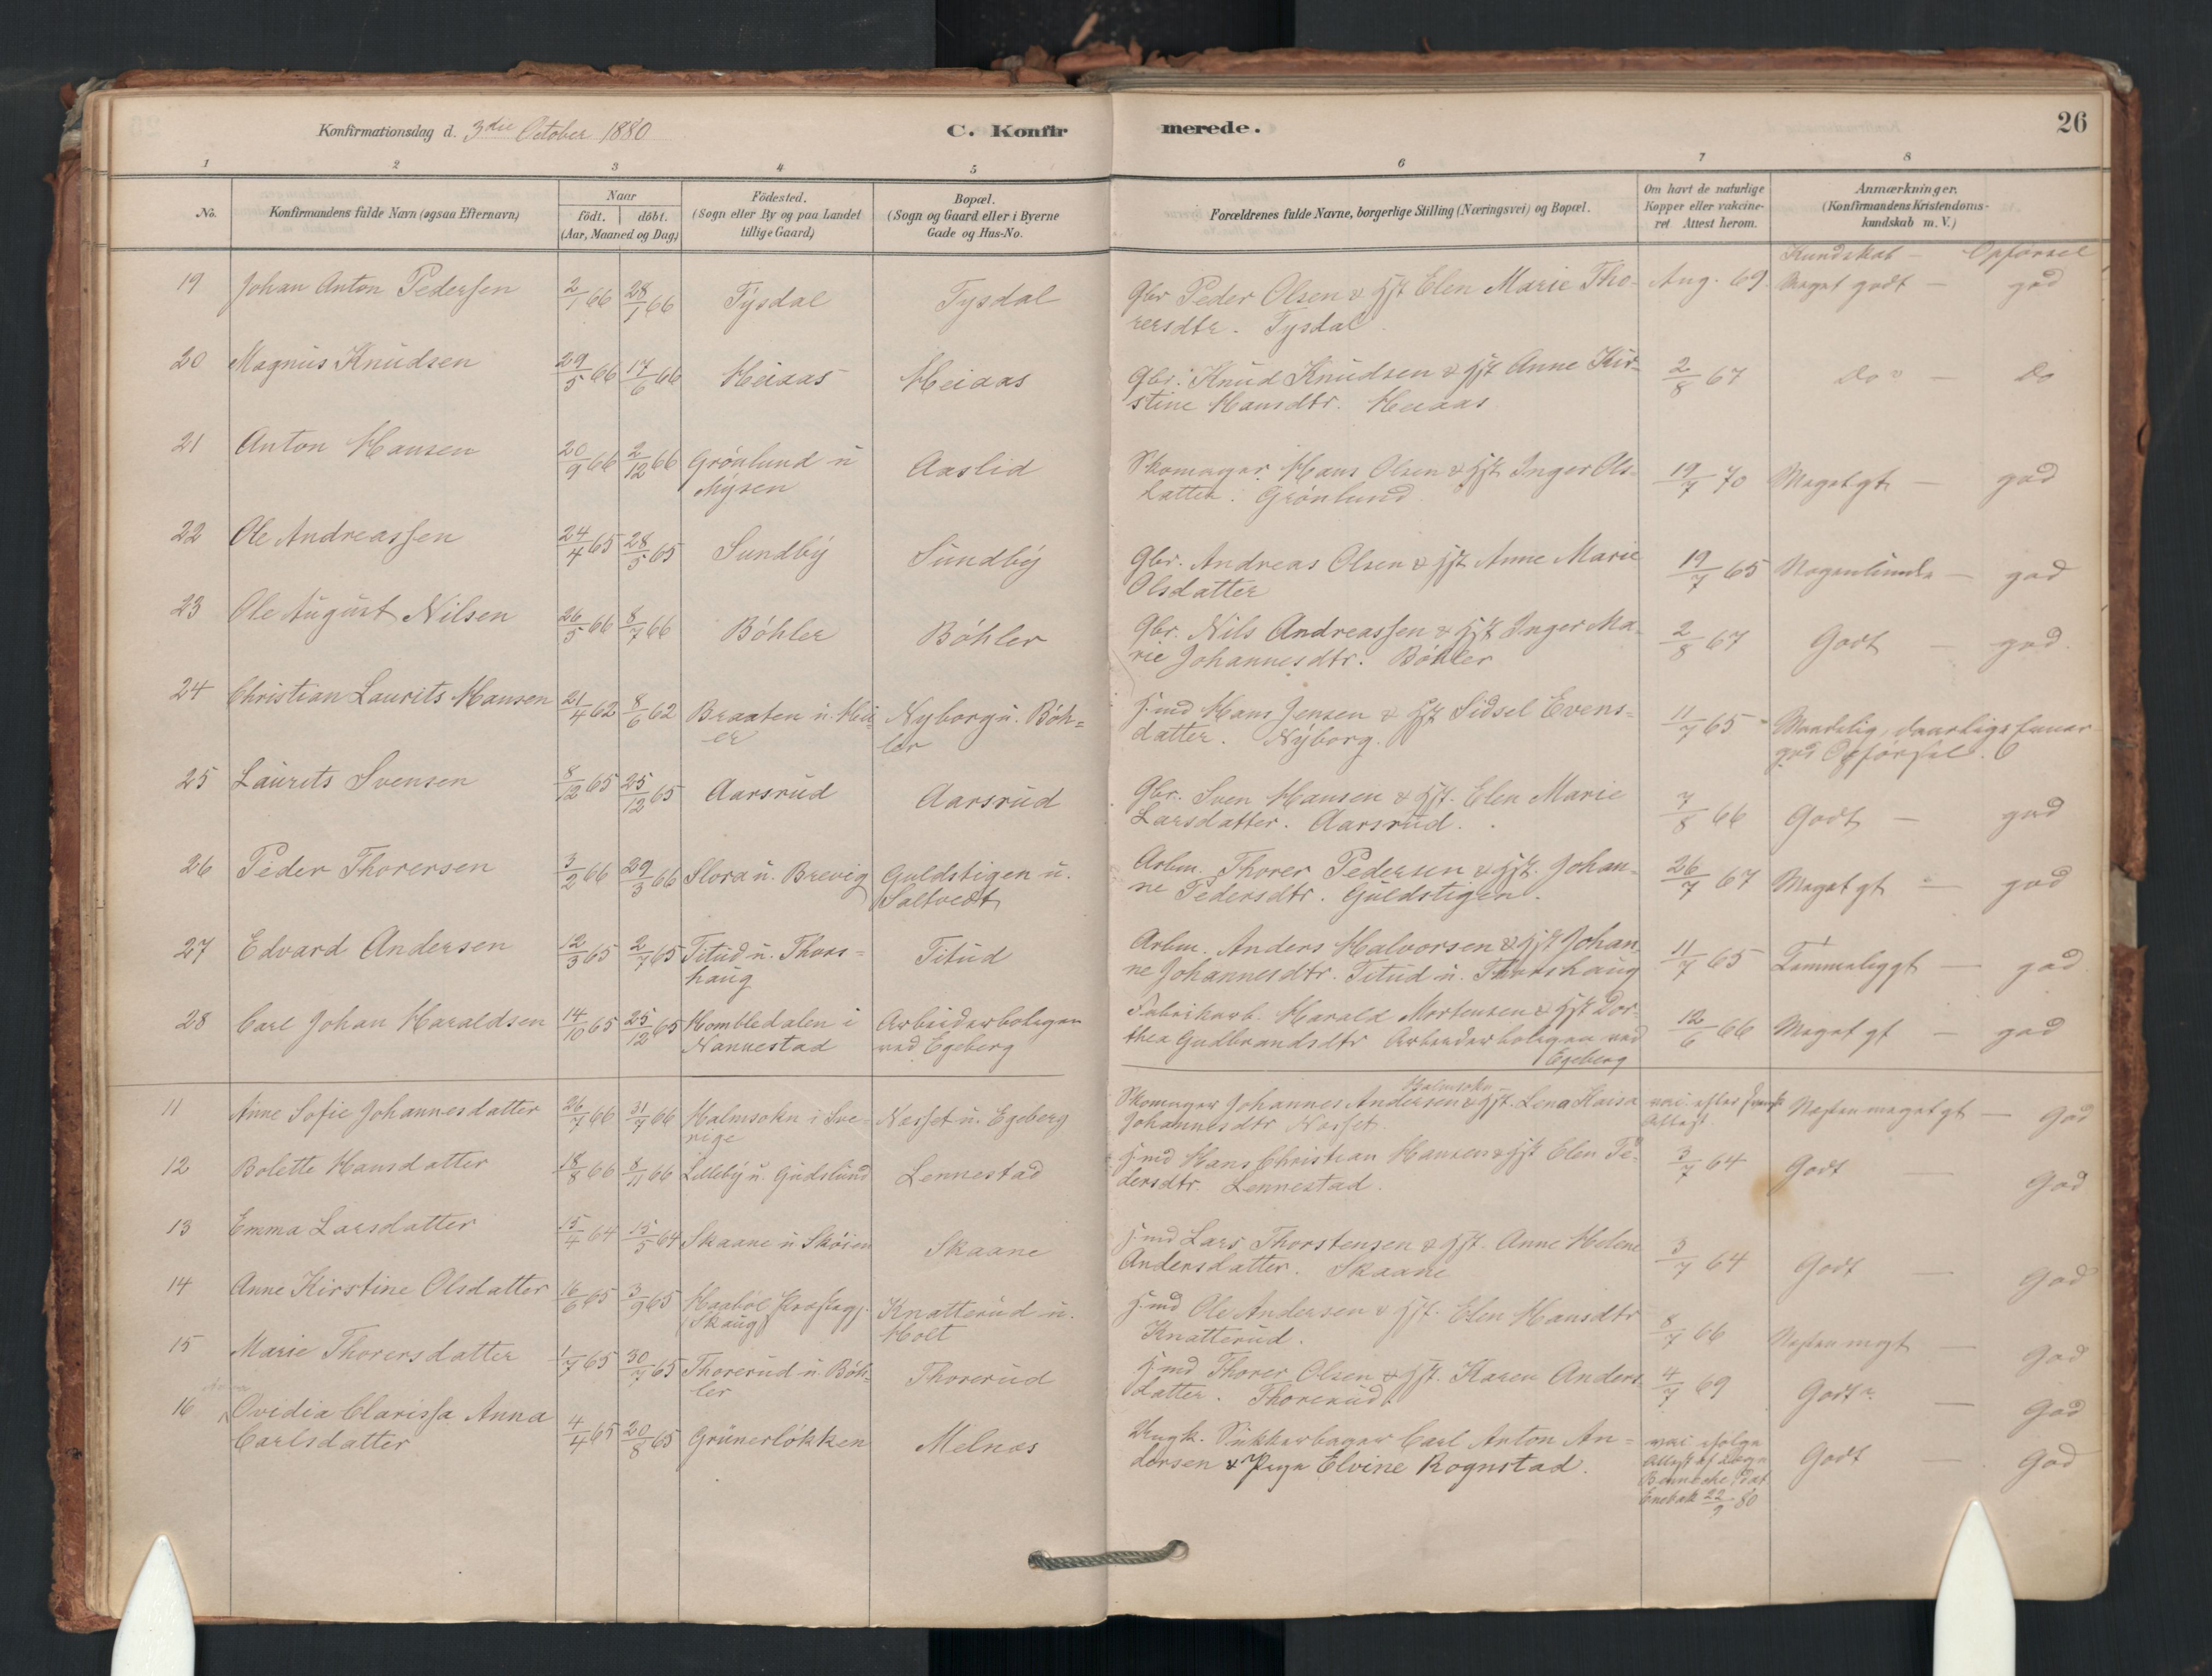 Konfirmationsdag d. 3die October 1880
C. Konfirmerede.
26
1 2 3 4 5 6 7 8
No.
Konfirmandens fulde Navn (ogsaa Efternavn)
Naar
födt. döbt.
(Aar, Maaned og Dag)
Födested.
(Sogn eller By og paa Landet
tillige Gaard)
Bopæl.
(Sogn og Gaard eller i Byerne
Gade og Hus-No.
Forældrenes fulde Navne, borgerlige Stilling (Næringsvei) og Bopæl.
Om havt de naturlige
Kopper eller vakcine-
ret Attest herom.
Anmærkninger.
(Konfirmandens Kristendoms-
kundskab m. V.)
Kundskab - Opførsel
19 Johan Anton Pedersen 2/1 66 28/1 66 Tysdal Tysdal Gbr Peder Olsen & Hst Elen Marie Tho- Aug. 69. Meget godt - god
rersdtr. Tysdal.
20 Magnus Knudsen 29/5 66 17/6 66 Heiaas Heiaas Gbr. Knud Knudsen & Hst Anne Kir- 2/8 67 Do - Do
stine Hansdtr. Heiaas
21 Anton Hansen 20/9 66 2/12 66 Grönlund u Aaslid Skomager Hans Olsen & Hst. Inger Ols- 19/7 70 Meget gt - god
Mysen datter. Grönlund
22 Ole Andreassen 24/4 65 28/5 65 Sundby Sundby Gbr. Andreas Olsen & Hst Anne Marie 19/7 65 Nogenlunde - god
Olsdatter
23 Ole August Nilsen 26/5 66 8/7 66 Böhler Böhler Gbr. Nils Andreassen & Hst Inger Ma- 2/8 67 Godt - god
rie Johannesdtr. Böhler
24 Christian Laurits Hansen 21/4 62 8/6 62 Braaten u. Hei- Nyborg u. Böh- Hmd Hans Jensen & Hst Sidsel Evens- 11/7 65
er ler datter. Nyborg. god Opførsel.
25 Laurits Svensen 8/12 65 25/12 65 Aarsrud Aarsrud Gbr. Sven Hansen & Hst. Elen Marie 7/8 66 Godt - god
Larsdatter. Aarsrud.
26 Peder Thorersen 3/2 66 29/3 66 Slora u. Brevig Guldstigen u. Arbm. Thorer Pedersen & Hst. Johan- 26/7 67 Meget gt - god
Saltvedt ne Pedersdtr. Guldstigen.
27 Edvard Andersen 12/3 65 2/7 65 Titud u. Thors- Titud Arbm. Anders Halvorsen & Hst Johan- 11/7 65 Temmeligt - god
haug ne Johannesdtr. Titud u. Thorshaug
28 Carl Johan Haraldsen 14/10 65 25/12 65 Hombledalen i Arbeiderboligen Fabrikarb. Harald Mortensen & Hst Dor- 12/6 66 Meget gt - god
Nannestad ved Egeberg thea Gudbrandsdtr Arbeiderboligen ved
Egeberg
11 Anne Sofie Johannesdatter 26/7 66 31/7 66 Halmsokn i Sve- Næsset u. Egeberg Skomager Johannes Andersen & Hst. Lena Kaisa vac. efter svensk Næsten meget gt - God
rige Johannesdtr Næsset. Attest.
12 Bolette Hansdatter 18/8 66 8/11 66 Lilleby u. Gudslund Lennestad Hmd Hans Christian Hansen & Hst Elen Pe- 3/7 64 Godt - God
dersdtr. Lennestad.
13 Emma Larsdatter 15/4 64 15/5 64 Skaane u Sköien Skaane Hmd Lars Thorstensen & Hst. Anne Helene 3/7 64 Godt - God
Andersdatter. Skaane
14 Anne Kirstine Olsdatter 16/6 65 3/9 65 Haaböl Præstegj. Knatterud u. Hmd Ole Andersen & Hst. Elen Hansdtr 8/7 66 Næsten megt - God
(Skaug) Holt Knatterud.
15 Marie Thorersdatter 1/7 65 30/7 65 Thorerud u. Böh- Thorerud Hmd Thorer Olsen & Hst. Karen Anders- 4/7 69 Godt - God
ler datter. Thorerud.
16 Ovedia Clarissa Anna 4/4 65 20/8 65 Grünerlökken Melnæs Ungk. Sukkerbager Carl Anton An- Godt - God
Carlsdatter dersen & Pige Elvine Rognstad.
Enebak 22/9 80